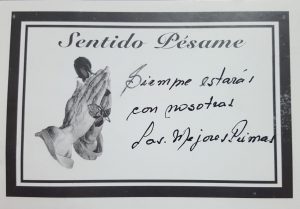 Sentido Pésame
Siempre estarás
con nosotras
Las Mejores Primas